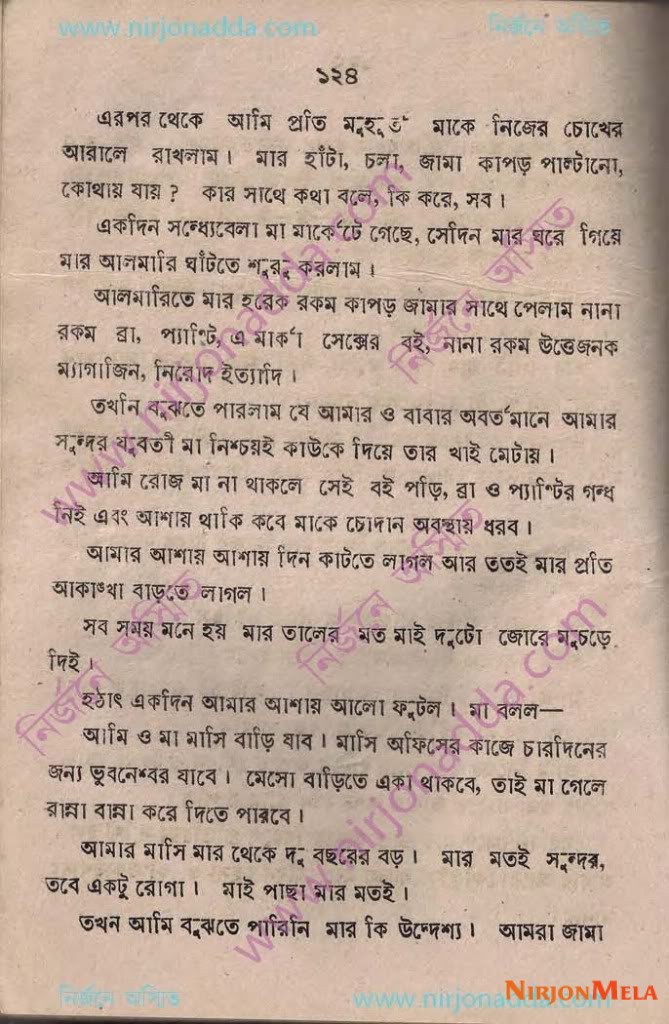 www.nirjonadda.com নির্জনে অস্মিত
১২৪
এরপর থেকে আমি প্রতি মুহূর্ত মাকে নিজের চোখের
আরালে রাখলাম। মার হাঁটা, চলা, জামা কাপড় পাল্টানো,
কোথায় যায় ? কার সাথে কথা বলে, কি করে, সব।
একদিন সন্ধ্যেবেলা মা মার্কেটে গেছে, সেদিন মার ঘরে গিয়ে
মার আলমারি ঘাঁটতে শুরু করলাম।
আলমারিতে মার হরেক রকম কাপড় জামার সাথে পেলাম নানা
রকম ব্রা, প্যান্টি, এ মার্কা সেক্সের বই, নানা রকম উত্তেজনক
ম্যাগাজিন, নিরোদ ইত্যাদি।
তখনি বুঝতে পারলাম যে আমার ও বাবার অবর্তমানে আমার
সুন্দর যুবতী মা নিশ্চয়ই কাউকে দিয়ে তার খাই মেটায়।
আমি রোজ মা না থাকলে সেই বই পড়ি, ব্রা ও প্যান্টির গন্ধ
নিই এবং আশায় থাকি কবে মাকে চোদান অবস্থায় ধরব।
আমার আশায় আশায় দিন কাটতে লাগল আর ততই মার প্রতি
আকাঙ্খা বাড়তে লাগল।
সব সময় মনে হয় মার তালের মত মাই দুটো জোরে মুচড়ে
দিই।
হঠাৎ একদিন আমার আশায় আলো ফুটল। মা বলল—
আমি ও মা মাসি বাড়ি যাব। মাসি অফিসের কাজে চারদিনের
জন্য ভুবনেশ্বর যাবে। মেসো বাড়িতে একা থাকবে, তাই মা গেলে
রান্না বান্না করে দিতে পারবে।
আমার মাসি মার থেকে দু বছরের বড়। মার মতই সুন্দর,
তবে একটু রোগা। মাই পাছা মার মতই।
তখন আমি বুঝতে পারিনি মার কি উদ্দেশ্য। আমরা জামা
নির্জনে অস্মিত www.nirjonadda.com
NIRJONMELA